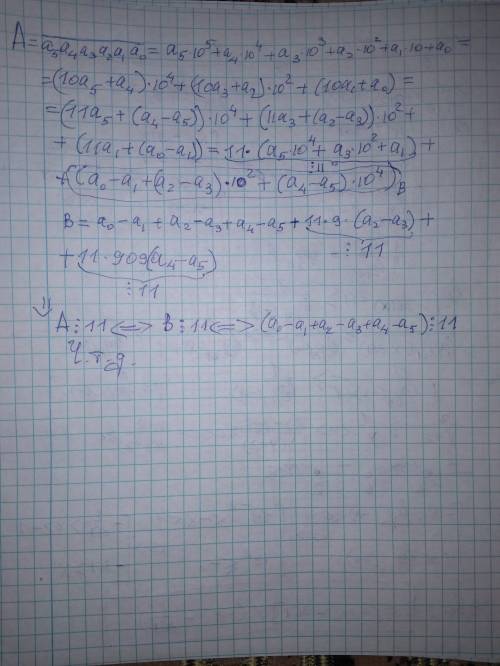 A = a₅a₄a₃a₂a₁a₀ = a₅·10⁵ + a₄·10⁴ + a₃·10³ + a₂·10² + a₁·10 + a₀ =
= (10a₅ + a₄)·10⁴ + (10a₃ + a₂)·10² + (10a₁ + a₀) =
= (11a₅ + (a₄ - a₅))·10⁴ + (11a₃ + (a₂ - a₃))·10² +
+ (11a₁ + (a₀ - a₁)) = 11·(a₅·10⁴ + a₃·10² + a₁) +
⋮11
+ ((a₀ - a₁ + (a₂ - a₃)·10² + (a₄ - a₅)·10⁴) B
B = a₀ - a₁ + a₂ - a₃ + a₄ - a₅ + 11·9·(a₂ - a₃) +
⋮11
+ 11·909(a₄ - a₅)
⋮11
⇓
A⋮11 <=> B⋮11 <=> (a₀ - a₁ + a₂ - a₃ + a₄ - a₅)⋮11
Ч.т.д.